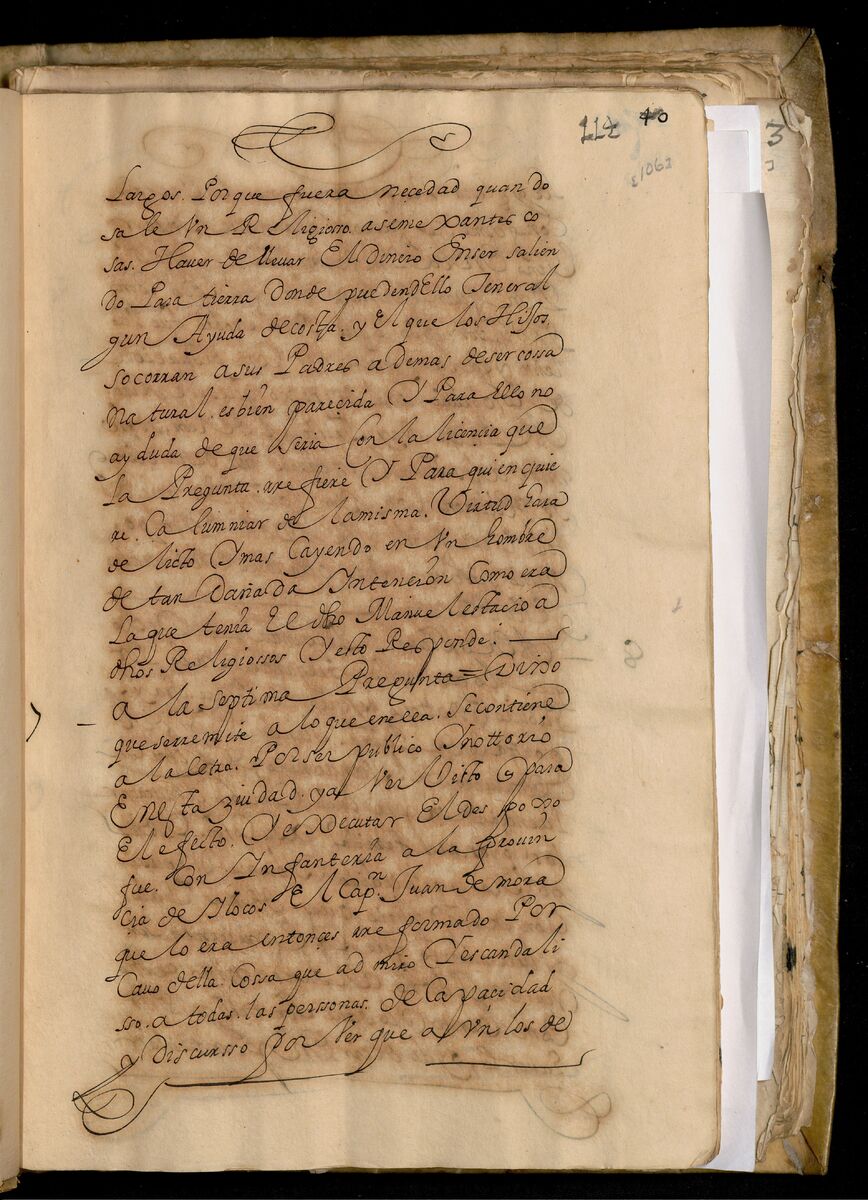 114 40
1062
3
Largos. Porque fuera necedad quando
sale Vn Religiosso. asemexantes co
sas. Hauer de lleuar El dinero Enser salien
do Para tierra donde puedendEllo Teneral
gun Ayuda decosta. y El que los Hijos.
socorran asus Padres ademas deser cossa
Natural. es bien pareçida Y Para Ello no
ay duda de que seria Con la licencia que
La Pregunta. rrefiere Y Para quien quie
re. Calumniar de lamisma. Virtud hara
delicto Ymas Cayendo en Vn hombre
de tan Dañada Intencion Como era
La que tenia El dho Manuel estacio a
dhos Religiossos Y esto Responde.
a la septima Pregunta = Dixo
que serremite a lo que enella. Se contiene
a la letra. Por ser publico Ynottorio
Enesta ziudad. ya Ver Visto q para
El efecto. Y Executar El despojo
fue. Con Infanteria a la Prouin
çia de Ylocos El Capn. Juan de mora
que lo era entonçes rreformado Por
Cauo della. Cossa que admiro Y escandali
sso. a todas. las perssonas. de Capacidad
y Discursso Por Ver que a Vn los de